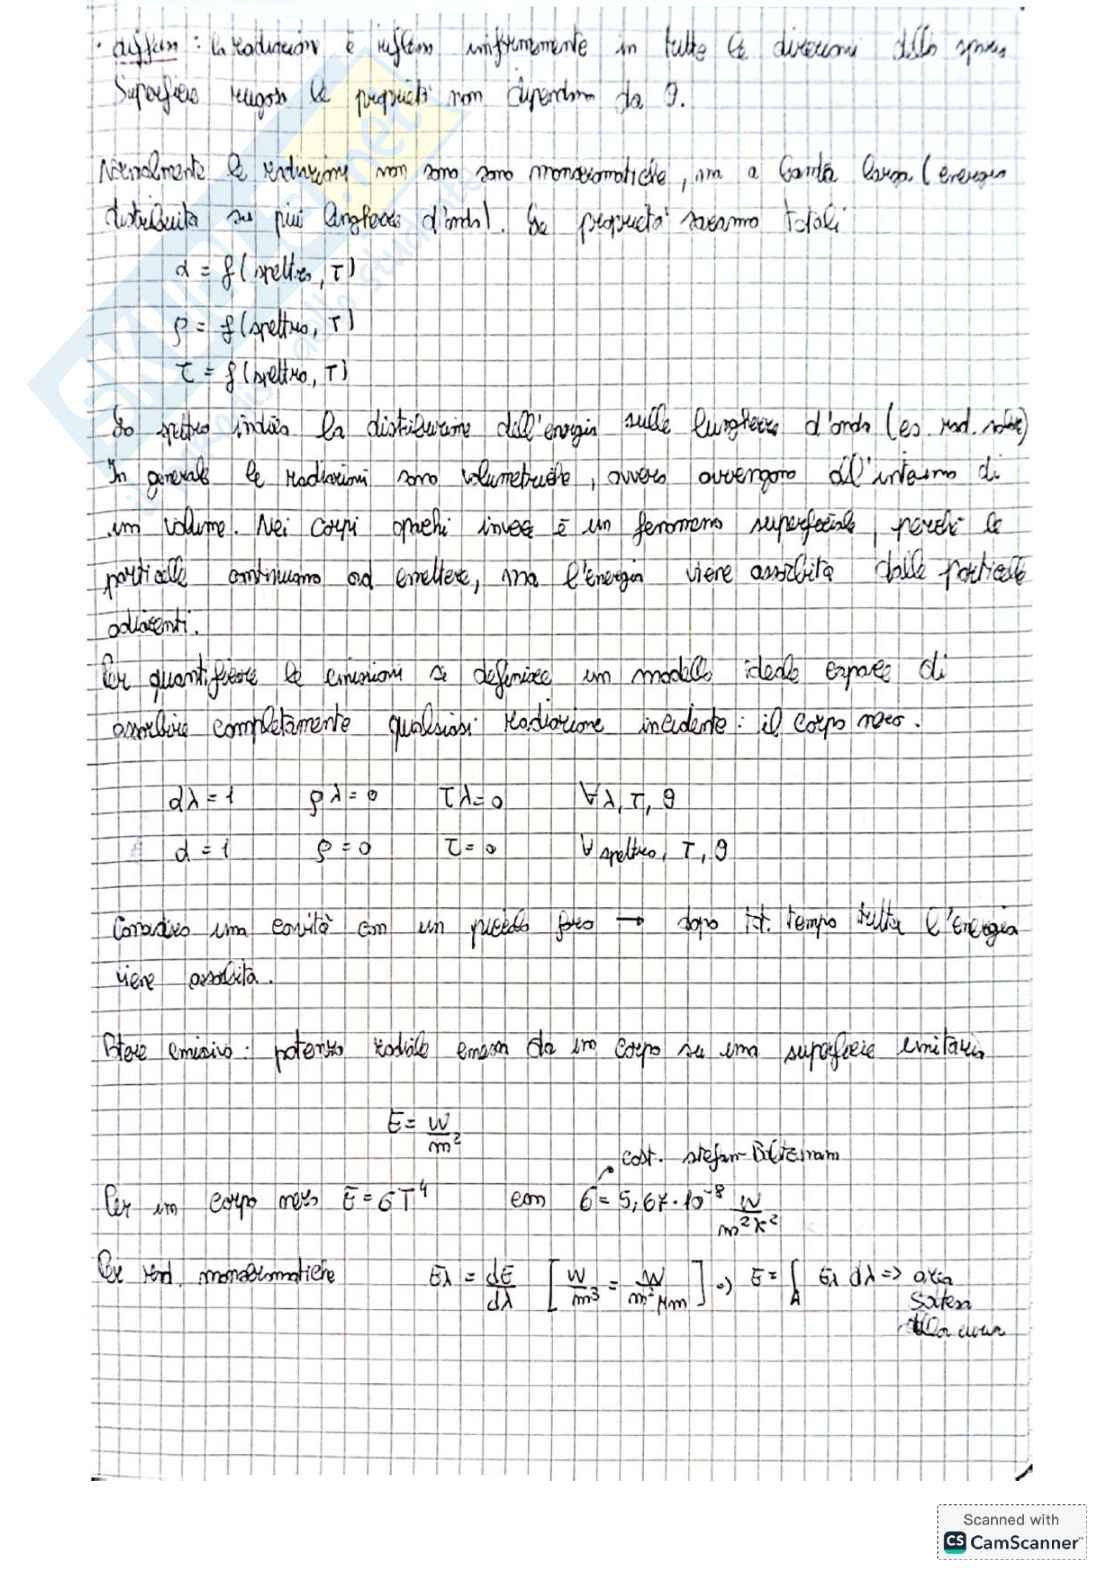 • diffusa : la radiazione è riflessa uniformemente in tutte le direzioni dello spazio
Superficie rugosa le proprietà non dipendono da θ.
Normalmente le radiazioni non sono sono monocromatiche, ma a banda larga (energia
distribuita su più lunghezze d'onda). Le proprietà saranno totali
α = f(spettro, T)
ρ = f(spettro, T)
τ = f(spettro, T)
Lo spettro indica la distribuzione dell'energia sulle lunghezze d'onda (es. rad. solare)
In generale le radiazioni sono volumetriche, ovvero avvengono all'interno di
un volume. Nei corpi opachi invece è un fenomeno superficiale, perché le
particelle continuano ad emettere, ma l'energia viene assorbita dalle particelle
adiacenti.
Per quantificare le emissioni si definisce un modello ideale capace di
assorbire completamente qualsiasi radiazione incidente: il corpo nero.
αλ = 1 ρλ = 0 τλ = 0 ∀λ, T, θ
α = 1 ρ = 0 τ = 0 ∀ spettro, T, θ
Considero una cavità con un piccolo foro → dopo tot. tempo tutta l'energia
viene assorbita.
Potere emissivo: potenza radiale emessa da un corpo su una superficie unitaria
E = W/m²
cost. Stefan-Boltzmann
Per un corpo nero E = σT⁴ con σ = 5,67·10⁻⁸ W/m²K²
Per rad. monocromatiche Eλ = dE/dλ [W/m³ = W/m²μm] => E = ∫ Eλ dλ => area
sottesa
alla curva
Scanned with
CS CamScanner